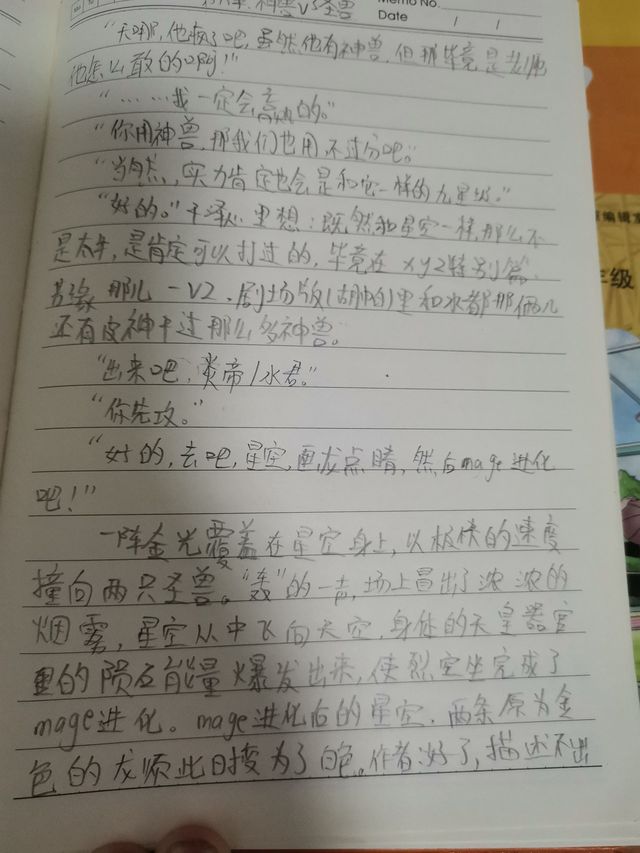 神兽VS圣兽
Memo No.
Date / /
"天哪，他疯了吧，虽然他有神兽，但那毕竟是老师
他怎么敢的啊！"
"……我一定会赢的。"
"你用神兽，那我们也用，不过分吧。"
"当然，实力肯定也会是和它一样的九星级。"
"好的。"干泽心里想：既然和星空一样，那么不
是太牛，是肯定可以打过的，毕竟在xyz特别篇，
那儿一V2，剧场版(胡帕的)里和水都那俩儿
还有皮神干过那么多神兽。
"出来吧，炎帝/水君。"
"你先攻。"
"好的，去吧，星空，画龙点睛，然后mage进化
吧！"
一阵金光覆盖在星空身上，以极快的速度
撞向两只圣兽。"轰"的一声，场上冒出了浓浓的
烟雾，星空从中飞向天空，身体的天皇器官
里的陨石能量爆发出来，使裂空坐完成了
mage进化。mage进化后的星空，两条原为金
色的龙须此日接为了白色。作者：好了，描述不出
编辑
年级